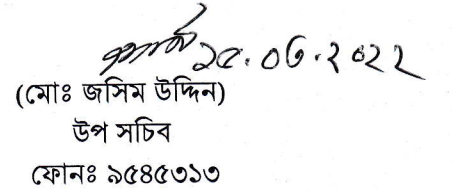 ১৫.০৬.২০২২
(মোঃ জসিম উদ্দিন)
উপ সচিব
ফোনঃ ৯৫৪৫৩১৩